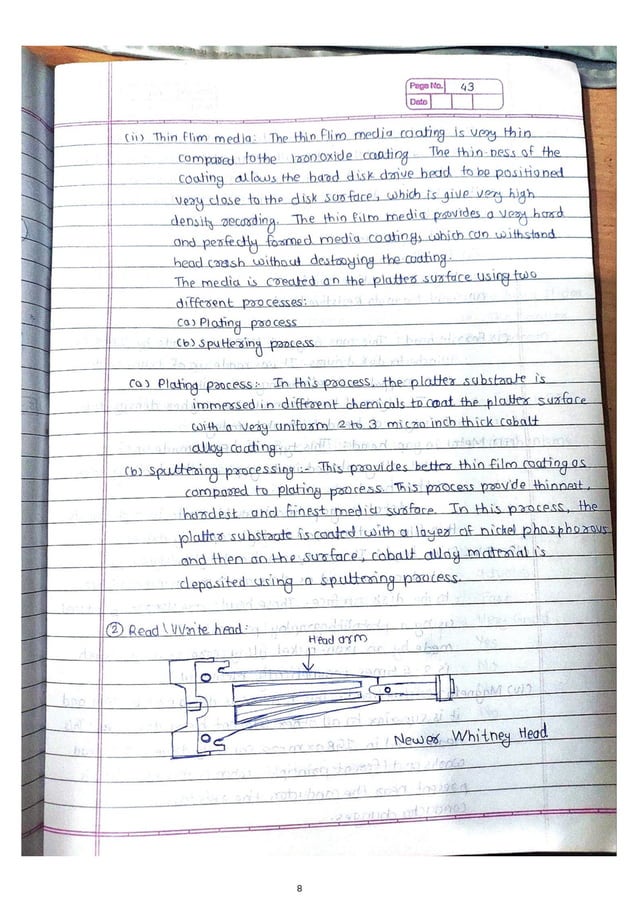 Page No. 43
Date
(ii) Thin flim media: The thin flim media coating is very thin
compared to the Iron oxide coating. The thin-ness of the
coating allows the hard disk drive head to be positioned
very close to the disk surface, which is give very high
density recording. The thin film media provides a very hard
and perfectly formed media coating, which can withstand
head crash without destroying the coating.
The media is created on the platter surface using two
different processes:
(a) Plating process
(b) sputtering process
(a) Plating process:- In this process, the platter substrate is
immersed in different chemicals to coat the platter surface
with a very uniform 2 to 3 micro inch thick cobalt
alloy coating.
(b) sputtering processing :- This provides better thin film coating as
compared to plating process. This process provide thinnest,
hardest and finest media surface. In this process, the
platter substrate is coated with a layer of nickel phosphorous
and then on the surface, cobalt alloy material is
deposited using a sputtering process.
② Read \ Write head:
Head arm
Newer Whitney Head
8